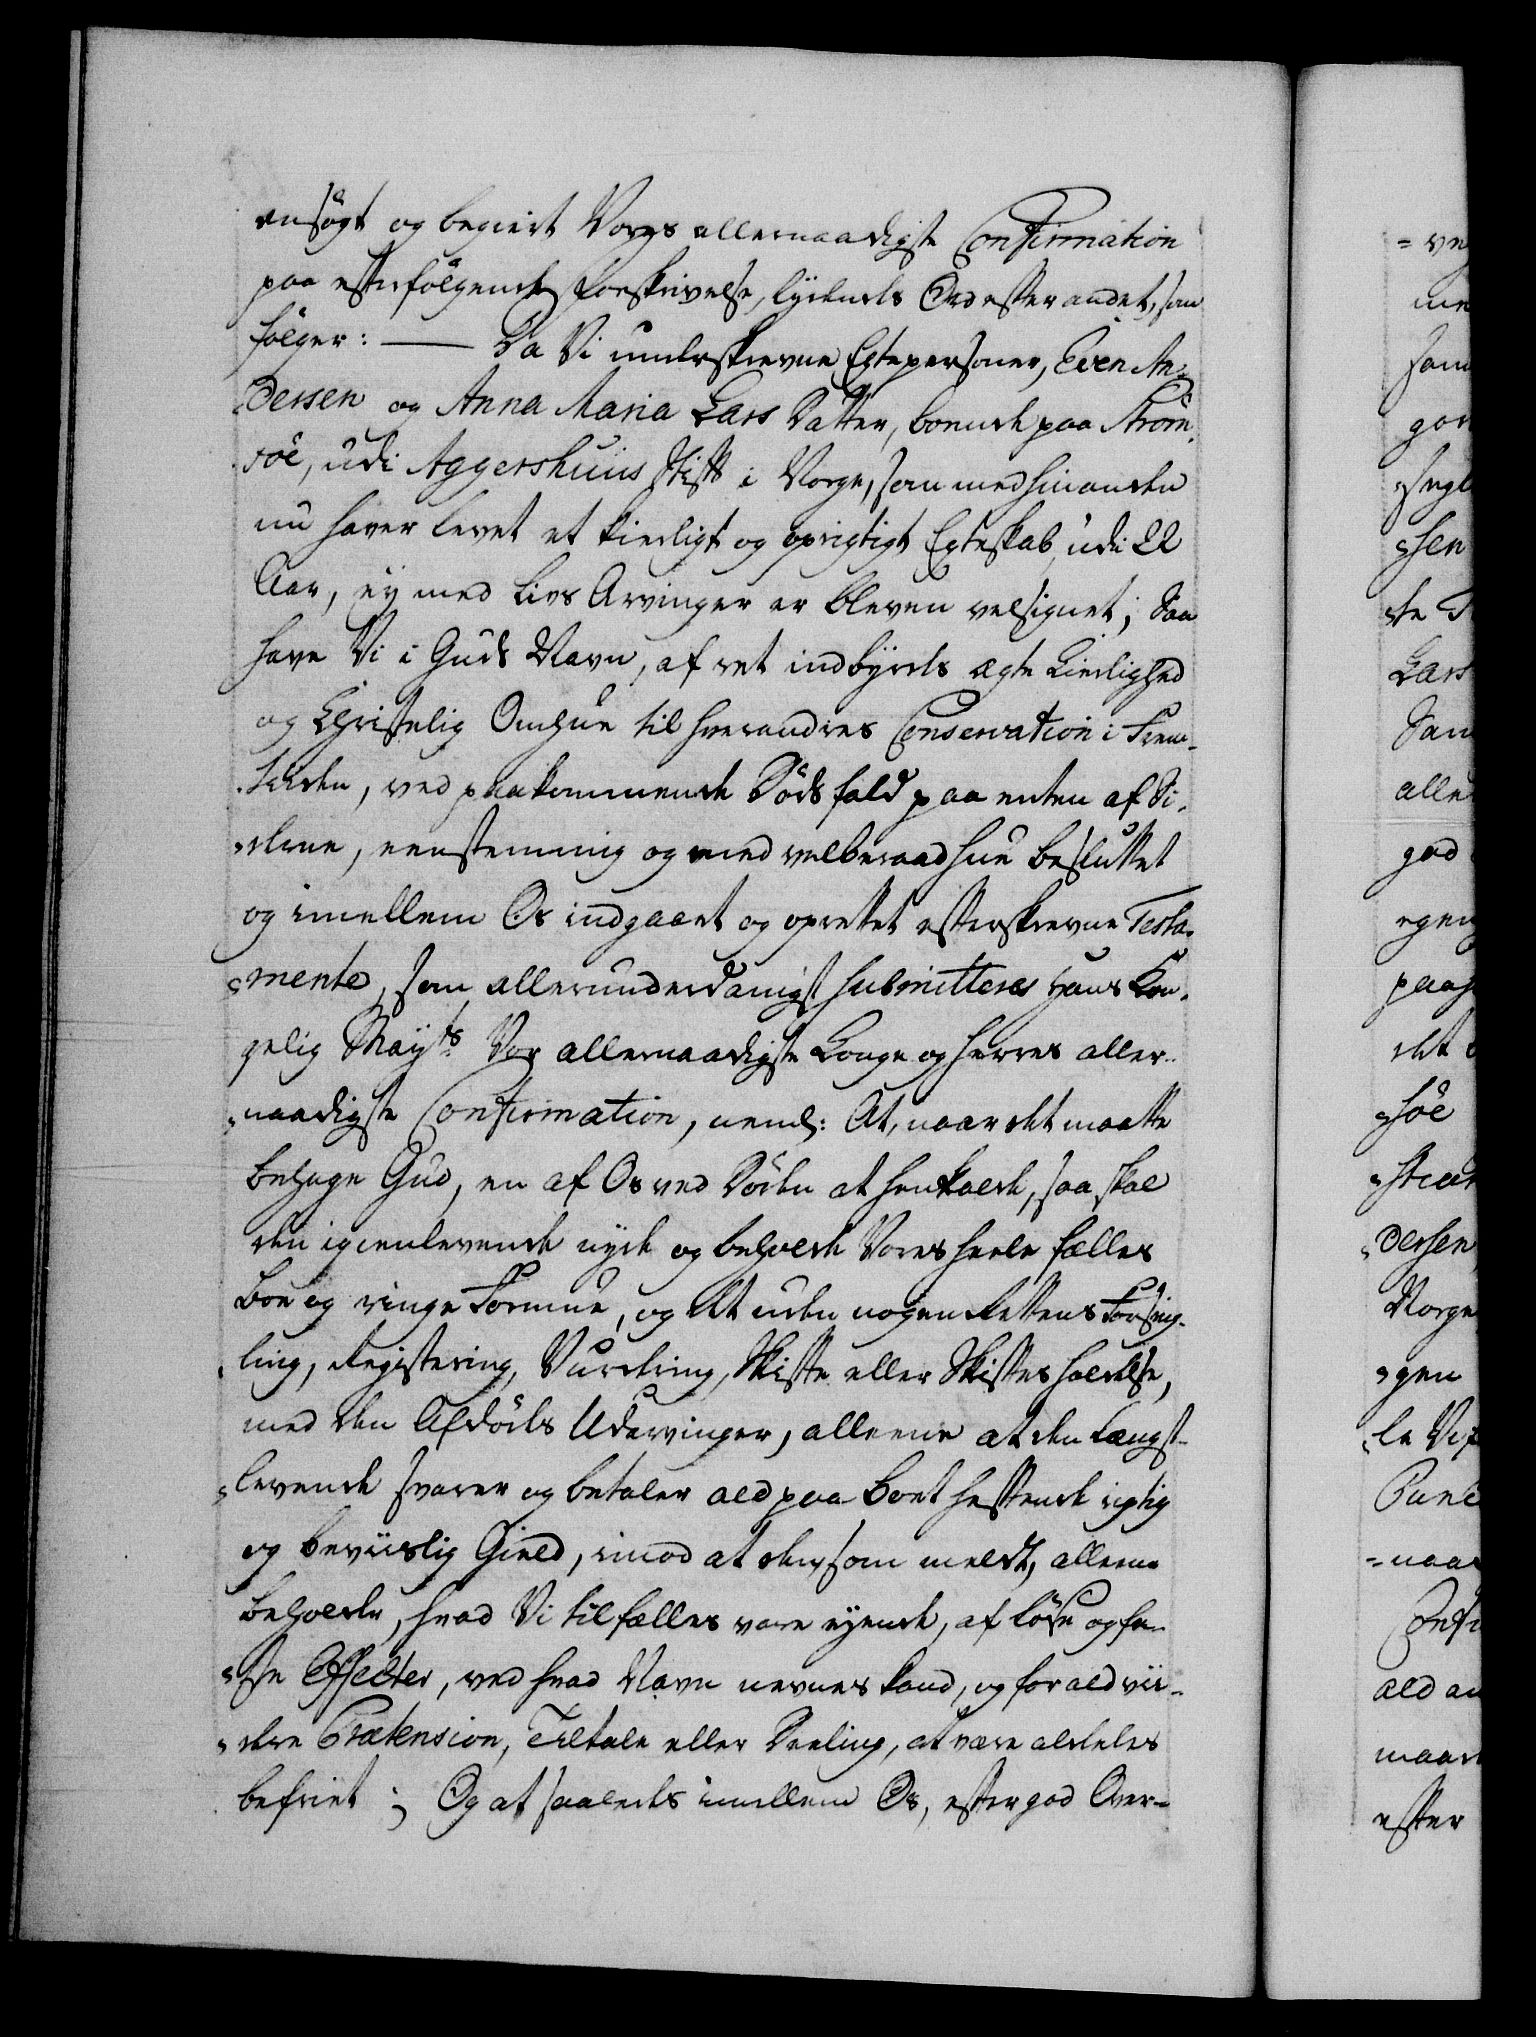 ansøgt og begiert Vores allernaadigste Confirmation
paa efterfølgende forskrivelse, lydende Ord efter andet, som
følger: — Da Vi underskrevne Egtepersoner, Even An-
dersen og Anna Maria Lars Datter, boende paa Strøm-
søe, udi Aggershuus stift i Norge, som med hinanden
nu haver levet et kierligt og oprigtigt Egteskab, udi 22
Aar, ey med Livs Arvinger er bleven velsignet; Saa
have Vi i Guds Navn, af ret indbyrdes ægte Kierlighed
og Christelig Omhue til hverandres Conservation i Frem-
tiden, ved paakommende Dødsfald paa enten af Si-
derne, eenstemmig og med velberaad hue besluttet
og imellem Os indgaaet og oprettet efterskrevne Testa-
mente, som allerunderdanigst submitteres Hans Kon-
gelig Mayts. Vor allernaadigste Konge og Herres aller-
naadigste Confirmation, neml: At, naar det maatte
behage Gud, en af Os ved Døden at henkalde, saa skal
den igienlevende nyde og beholde Vores heele fælles
Boe og ringe Formue, og det uden nogen Rettens Forseig-
ling, Registering, Vurdering, Skifte eller Skiftes holdelse,
med den Afdødes Udarvinger, alleene at den Længst-
levende svarer og betaler ald paa Boet heftende rigtig
og beviislig Gield, imod at den, som meldt, alleene
beholder, hvad Vi tilfælles vare eyende, af løse og fa-
ste Effecter, ved hvad Navn nevnes kand, og for ald vii-
dere Prætension, Tiltale eller Deeling, at være aldeles
befriet; Og at saaledes imellem Os, efter god Over-